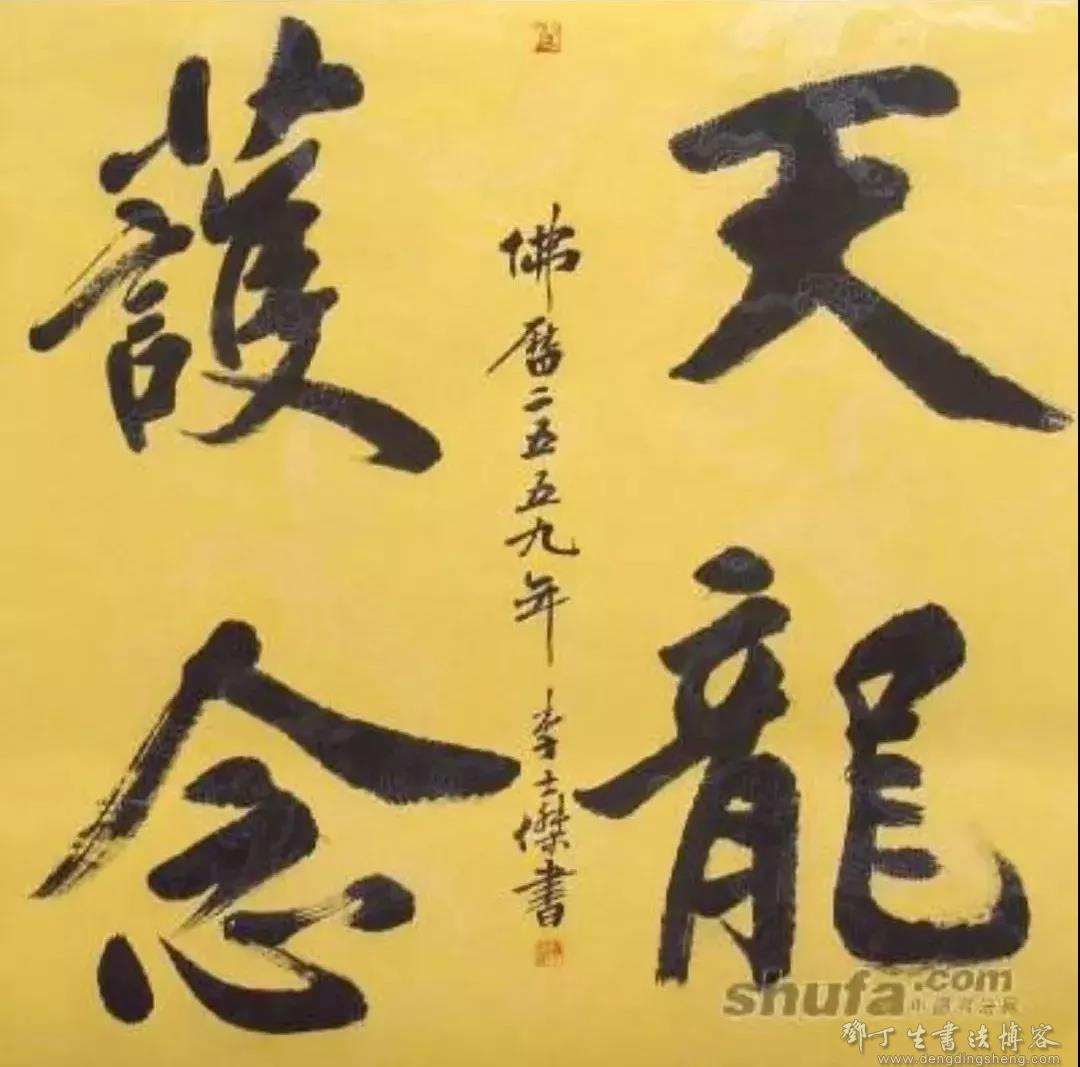 天龍
護念
佛曆二五五九年 李士傑書
shufa.com
中國書法網
鄧丁生書法博客
www.dengdingsheng.com